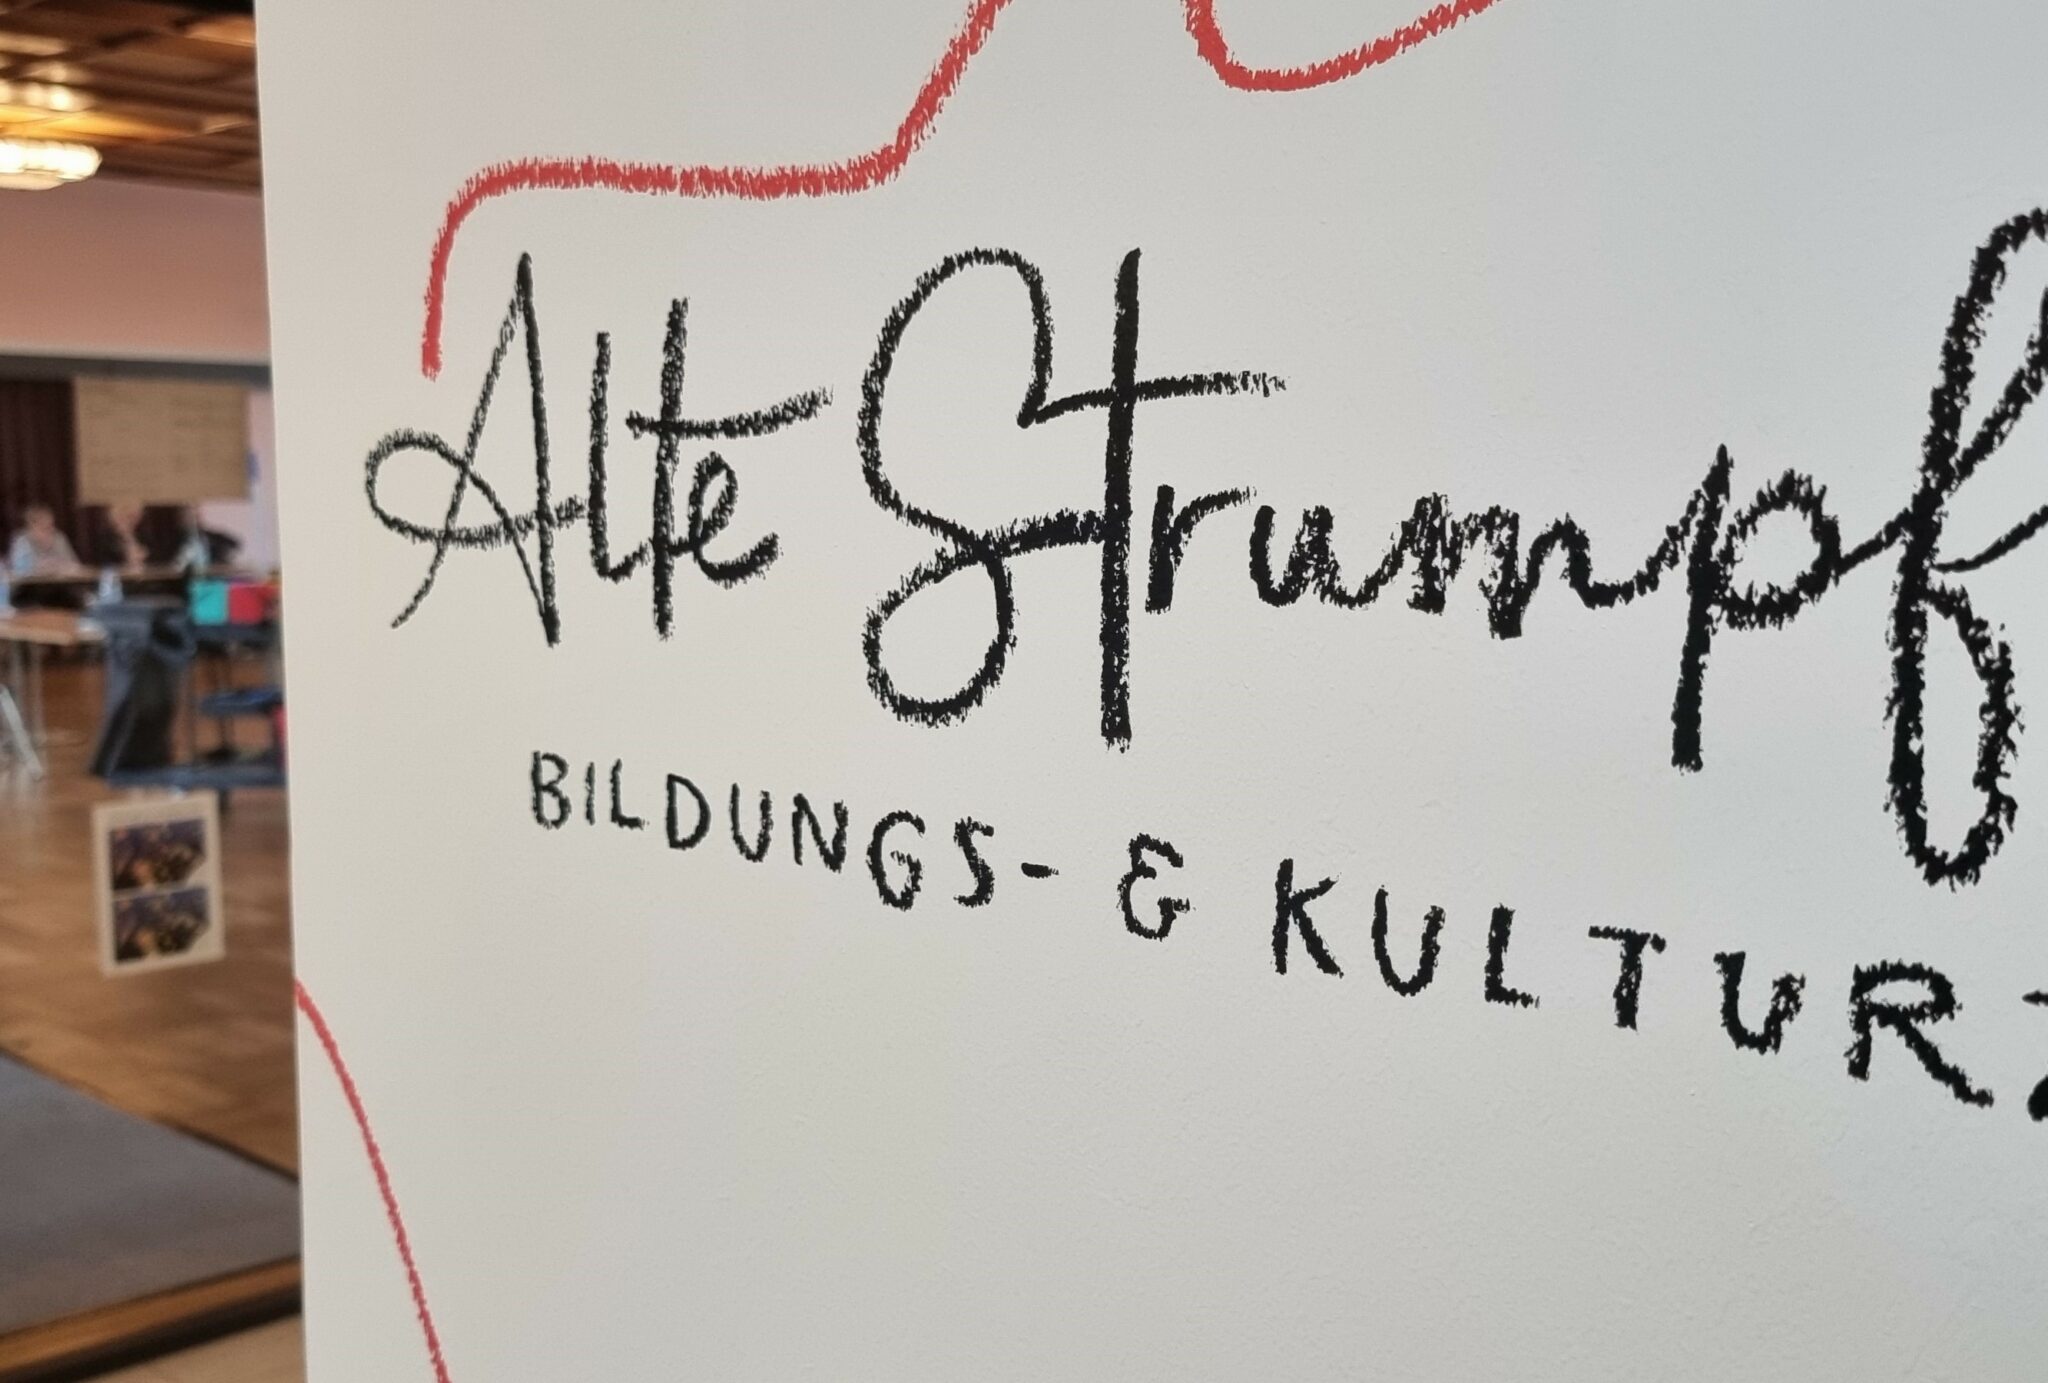 Alte Strumpf
BILDUNGS- & KULTURZ